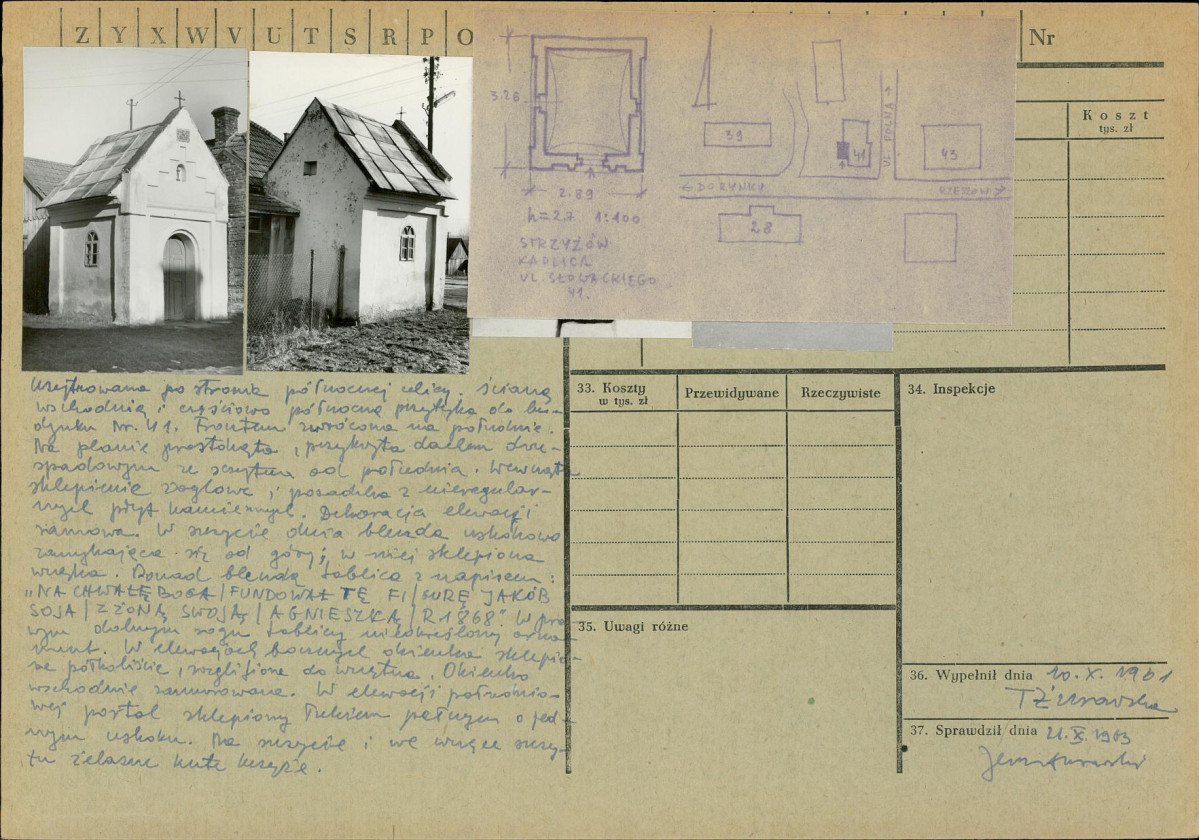 Z Y X W V U T S R P O
Nr
Koszt
tys. zł
3.26
2.89
h=2,7 1:100
STRZYŻÓW
KAPLICA
UL. SŁOWACKIEGO
41.
39
41
43
28
UL. POLNA →
← DO RYNKU
RZESZÓW →
Usytuowana po stronie północnej ulicy. Ścianą
wschodnią i częściowo północną przytyka do bu-
dynku Nr. 41. Frontem zwrócona na południe.
Na planie prostokąta, przykryta dachem dwu-
spadowym ze szczytem od południa. Wewnątrz
sklepienie żaglowe, i posadzka z nieregular-
nych płyt kamiennych. Dekoracja elewacji
ramowa. W szczycie duża blenda uskokowo
zamykająca się od góry; w niej sklepiona
wnęka. Ponad blendą tablica z napisem:
"NA CHWAŁĘ BOGA / FUNDOWAŁ TĘ FI / GURĘ JAKÓB
SOJA / Z ŻONĄ SWOJĄ / AGNIESZKĄ / R 1868". W pra-
wym dolnym rogu tablicy nieokreślony orna-
ment. W elewacjach bocznych okienka sklepio-
ne półkoliście, rozglifione do wnętrza. Okienko
wschodnie zamurowane. W elewacji południo-
wej portal sklepiony łukiem pełnym o jed-
nym uskoku. Na szczycie i we wnęce szczy-
tu żelazne kute krzyże.
33. Koszty
w tys. zł
Przewidywane
Rzeczywiste
34. Inspekcje
35. Uwagi różne
36. Wypełnił dnia 10. X. 1981
T Żurawska
37. Sprawdził dnia 21. X. 1983